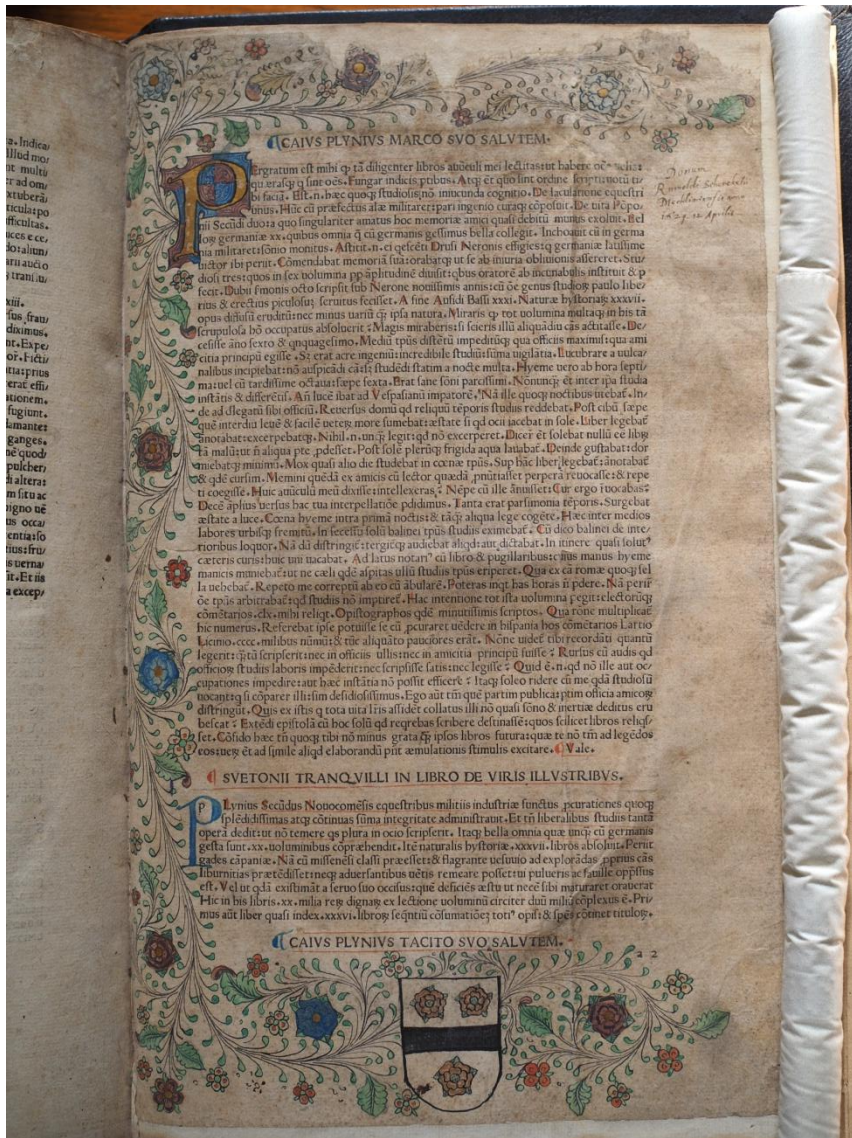 CAIVS PLYNIVS MARCO SVO SALVTEM.
PErgratum est mihi ꝙ tā diligenter libros auūculi mei lectitas:ut habere oēs uelis:
qu erasꝗ q sint oēs. Fungar indicis ꝑtibus. Atqꝫ ēt quo sint ordine scripti:notū ti/
bi faciā. Est.n. hæc quoqꝫ studiosis nō iniucunda cognitio. De iaculatione equestri
unus. Hūc cū præfectus alæ militaret: pari ingenio curaqꝫ cōposuit. De uita Pōpo
nii Secūdi duo: a quo singulariter amatus hoc memoriæ amici quasi debitū munus exoluit. Bel
loꝝ germaniæ xx. quibus omnia q̄ cū germanis gessimus bella collegit. Inchoauit cū in germa
nia militaret:sōnio monitus. Astitit.n.ei qescēti Drusi Neronis effigies:q germaniæ latissime
uictor ibi periit. Cōmendabat memoriā suā:orabatqꝫ ut se ab iniuria obliuionis assereret. Stu/
diosi tres:quos in sex uolumina ꝓp āplitudinē diuisit:qbus oratorē ab incunabulis instituit & ꝑ
fecit. Dubii ſmonis octo scripsit sub Nerone nouissimis annis:cū oē genus studioꝝ paulo libe/
rius & erectius piculosuꝫ seruitus fecisset. A fine Aufidi Bassi xxxi. Naturæ hystoriaꝝ xxxvii.
opus diffusū eruditū:nec minus uariū q̄ȝ ipsa natura. Miraris ꝙ tot uolumina multaqꝫ in his tā
scrupulosa hō occupatus absoluerit: Magis miraberis:si scieris illū aliquādiu cās actitasse. De/
cessisse āno sexto & qnquagesimo. Mediū tp̄us distētū impeditūqꝫ qua officiis maximis:qua ami
citia principū egisse. Sꝫ erat acre ingeniū:incredibile studiū:sūma uigilatia. Lucubrare a uulca/
nalibus incipiebat:nō auspicādi cā:sꝫ studēdi statim a nocte multa. Hyeme uero ab hora septi/
ma:uel cū tardissime octaua:sæpe sexta. Erat sane sōni parcissimi. Nōnunqꝫ ēt inter ipa studia
instātis & differētis. Añ lucē ibat ad Vespasianū impatorē. Nā ille quoqꝫ noctibus utebat̃. In/
de ad dlegatū sibi officiū. Reuersus domū qd reliquū tēporis studiis reddebat. Post cibū sæpe
quē interdiu leuē & facilē ueteꝝ more sumebat:æstate si qd ocii iacebat in sole. Liber legebat̃
ānotabat:excerpebatqꝫ. Nihil.n.unqꝫ legit:qd nō excerperet. Dicer̃ ēt solebat nullū eē libꝝ
tā malū:ut ñ aliqua pte ꝓdesset. Post solē plerūqꝫ frigida aqua lauabat̃. Deinde gustabat:dor
miebatqꝫ minimū. Mox quasi alio die studebat in cœnæ tp̄us. Sup hāc liber legebat̃:ānotabat̃
& qdē cursim. Memini quēdā ex amicis cū lector quædā ꝓnūtiasset perperā reuocasse:& repe
ti coegisse. Huic auūculū meū dixisse:intellexeras: Nēpe cū ille ānuisset: Cur ergo reuocabas:
Decē āplius uersus hac tua interpellatiōe pdidimus. Tanta erat parsimonia tēporis. Surgebat
æstate a luce. Cœna hyeme intra primā noctis:& tāqꝫ aliqua lege cogēte. Hæc inter medios
labores urbisqꝫ fremitū. In secessu solū balinei tp̄us studiis eximebat̃. Cū dico balinei de inte/
rioribus loquor. Nā dū distringit̃:tergit̃qꝫ audiebat aliqd:aut dictabat. In itinere quasi solut⁹
cæteris curis:huic uni uacabat. Ad latus notari⁹ cū libro & pugillaribus:cuius manus hyeme
manicis muniebāt̃:ut ne cæli qdē aspitas ullū studiis tp̄us eriperet. Qua ex cā romæ quoqꝫ sel
la uehebat̃. Repeto me correptū ab eo cū ābularē. Poteras inqt has horas ñ pdere. Nā perir̃
oē tp̄us arbitrabat̃:qd studiis nō imptiret̃. Hac intentione tot ista uolumina pegit:electorūqꝫ
cōmētarios.clx.mihi reliqt. Opistographos qdē minutissimis scriptos. Qua rōne multiplicat̃
hic numerus. Referebat ipse potuisse se cū ꝓcuraret uēdere in hispania hos cōmētarios Lartio
Licinio.cccc.milibus nūmū:& tūc aliquāto pauciores erāt. Nōne uidet̃ tibi recordāti quantū
legerit:q̄tū scripserit:nec in officiis ullis:nec in amicitia principū fuisse: Rursus cū audis qd
officioꝝ studiis laboris impēderit:nec scripsisse satis:nec legisse: Quid ē.n.qd nō ille aut oc/
cupationes impedire:aut hæc instātia nō possit efficere: Itaqꝫ soleo ridere cū me qdā studiosū
uocant:q si cōparer illi:sim desidiosissimus. Ego aut tm̄ quē partim publica:ptim officia amicoꝝ
distringūt. Quis ex istis q tota uita lr̄is assidēt collatus illi nō quasi sōno & inertiæ deditus eru
bescat: Extēdi epistolā cū hoc solū qd reqrebas scribere destinassē:quos scilicet libros reliqs/
set. Cōfido hæc tn̄ quoqꝫ tibi nō minus grata q̄ȝ ipsos libros futura:quæ te nō tm̄ ad legēdos
eos:ueꝝ ēt ad simile aliqd elaborandū pn̄t æmulationis stimulis excitare. Vale.
SVETONII TRANQVILLI IN LIBRO DE VIRIS ILLVSTRIBVS.
PLynius Secūdus Nouocomēsis equestribus militiis industriæ functus ꝓcurationes quoqꝫ
splēdidissimas atqꝫ cōtinuas sūma integritate administrauit. Et tn̄ liberalibus studiis tantā
operā dedit:ut nō temere qs plura in ocio scripserit. Itaqꝫ bella omnia quæ unqꝫ cū germanis
gesta sunt.xx.uoluminibus cōpræhendit. Itē naturalis hystoriæ.xxxvii.libros absoluit. Periit
gades cāpaniæ. Nā cū missenēsi classi præesset:& flagrante ueseuio ad explorādas ꝓprius cās
liburnitias prætēdisset:neqꝫ aduersantibus uētis remeare posset:ui pulueris ac fauillæ oppssus
est. Vel ut qdā existimāt a seruo suo occisus:quē deficiēs æstu ut necē sibi maturaret orauerat
Hic in his libris.xx.milia reꝝ dignaꝝ ex lectione uoluminū circiter duū miliū cōplexus ē. Pri/
mus aūt liber quasi index.xxxvi.libroꝝ seqn̄tiū cōsumatiōeꝫ toti⁹ opis:& spēs cōtinet tituloꝝ.
CAIVS PLYNIVS TACITO SVO SALVTEM.
a 2